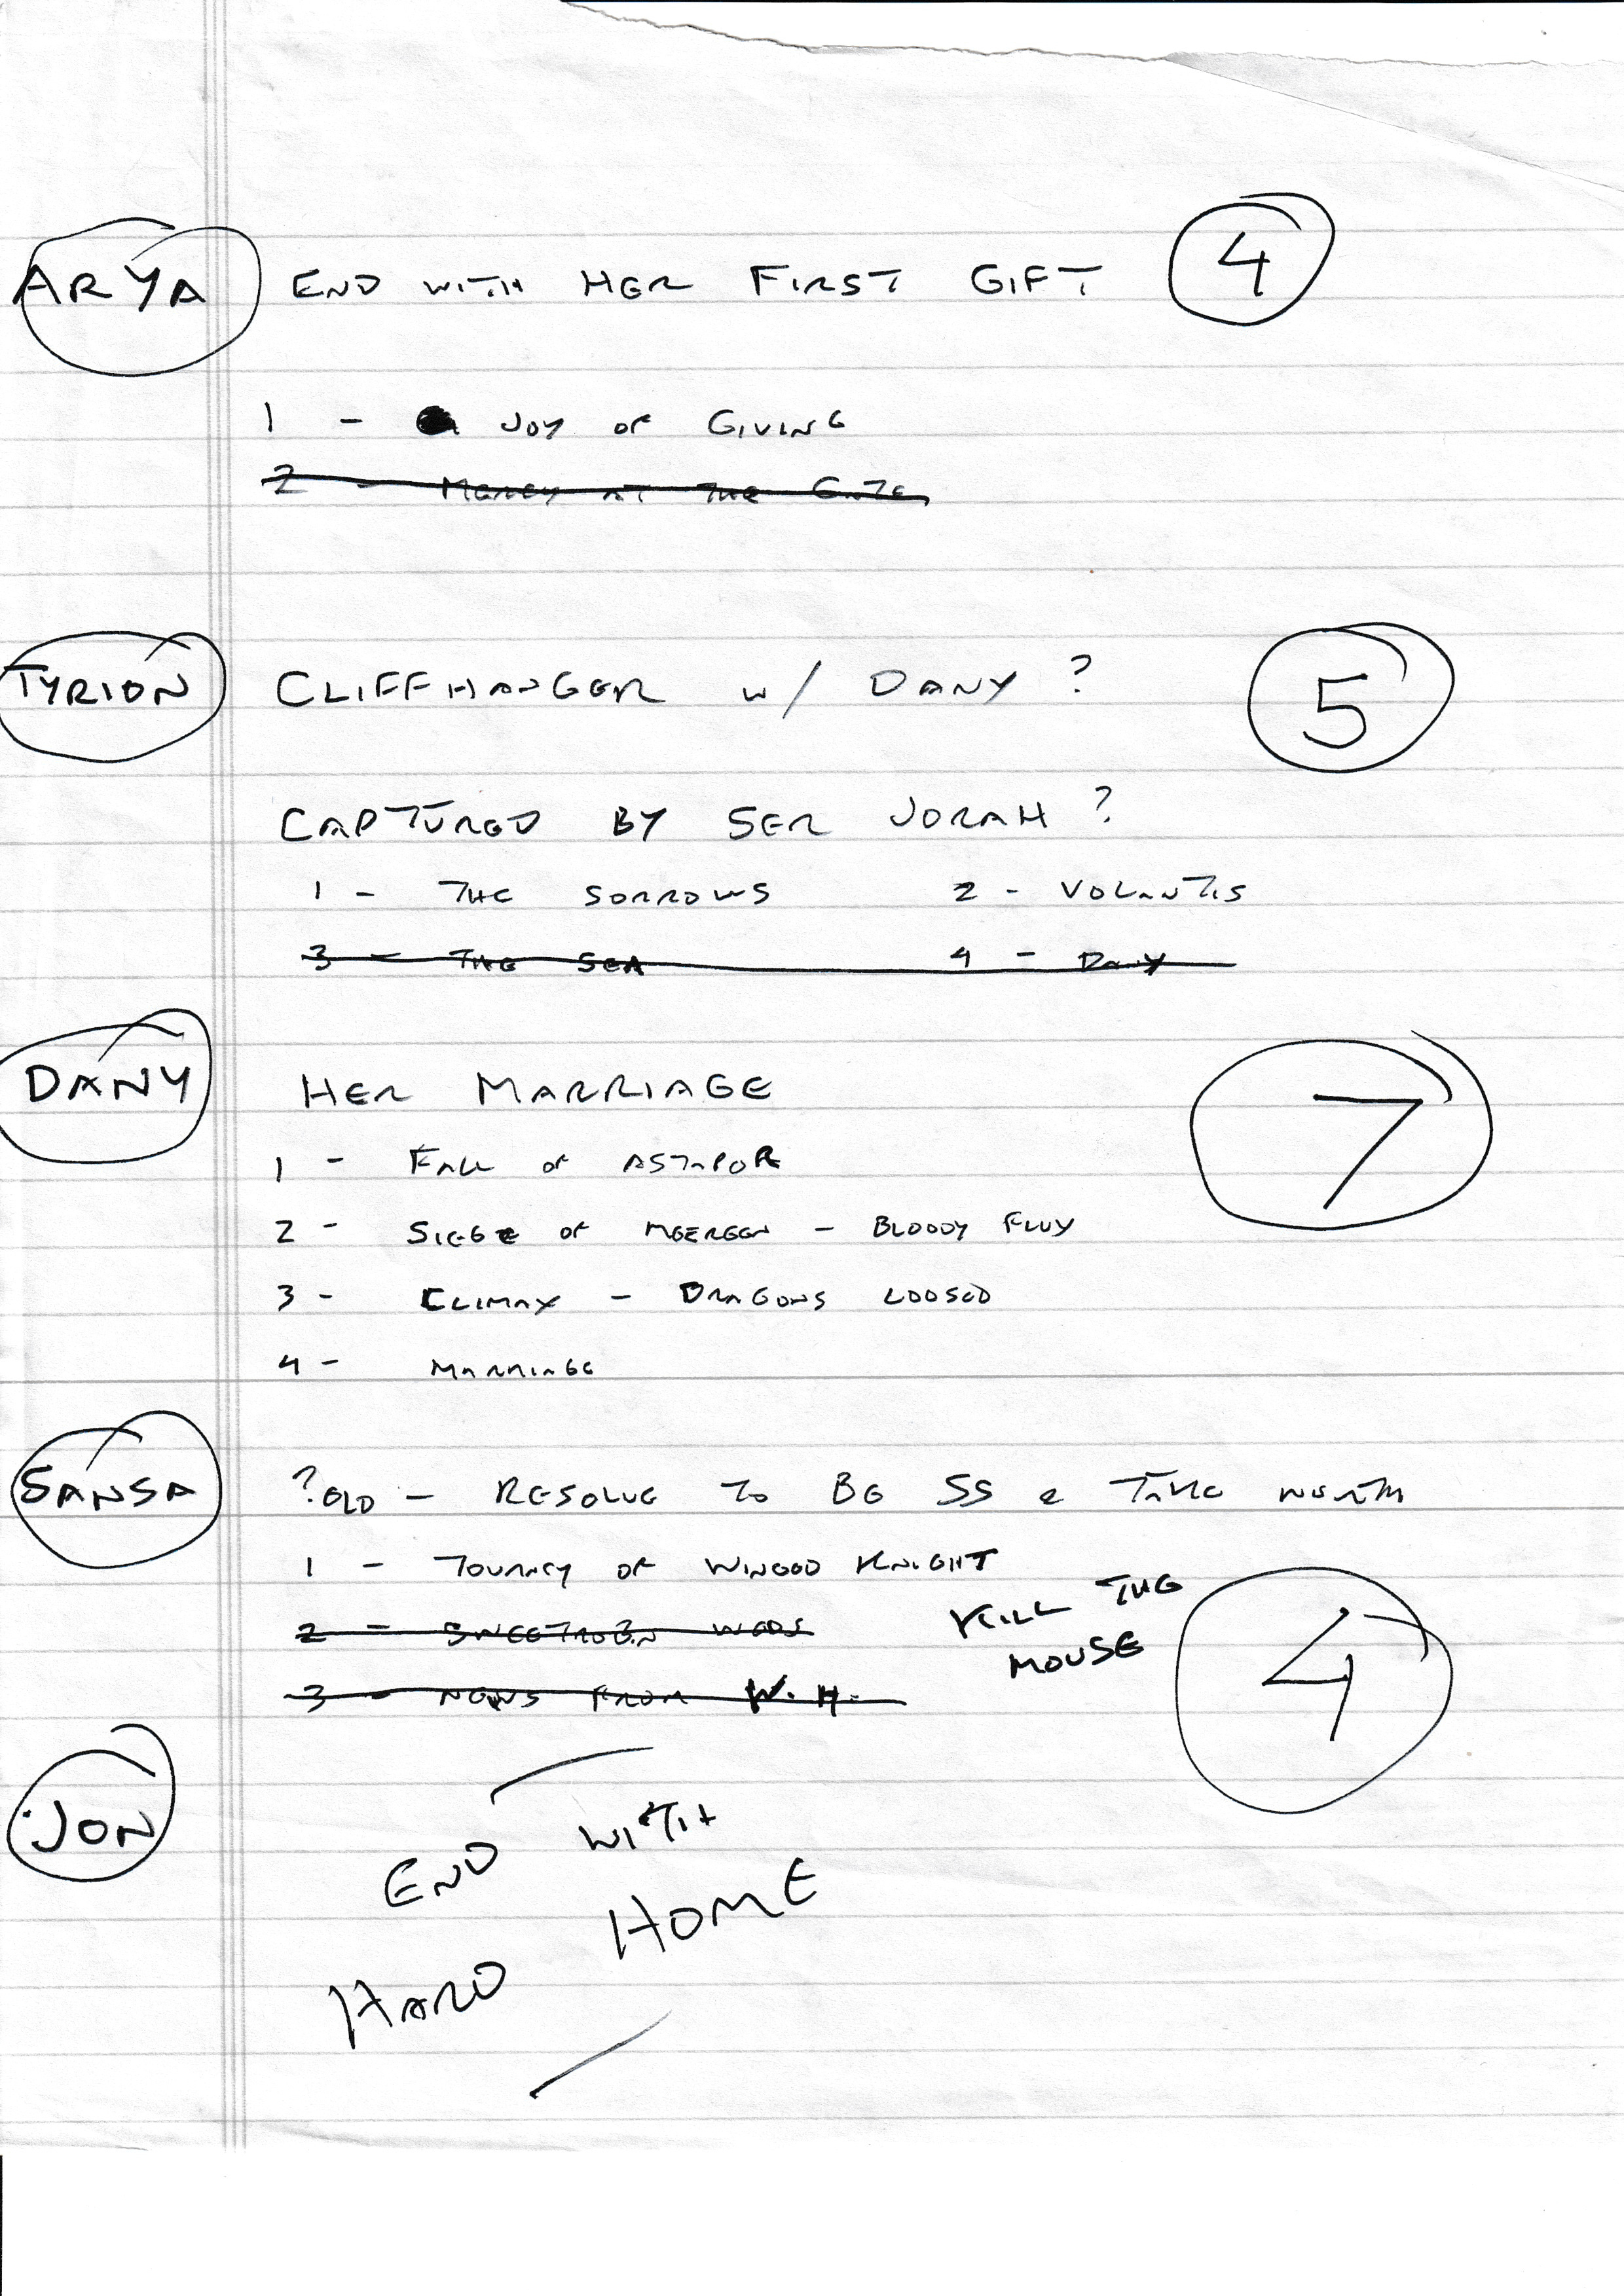 ARYA END WITH HER FIRST GIFT 4
1 - JOY OF GIVING
2 - MERCY AT THE GATE
TYRION CLIFFHANGER W/ DANY ? 5
CAPTURED BY SER JORAH ?
1 - THE SORROWS 2 - VOLANTIS
3 - THE SEA 4 - DANY
DANY HER MARRIAGE 7
1 - FALL OF ASTAPOR
2 - SIEGE OF MEEREEN - BLOODY FLUX
3 - CLIMAX - DRAGONS LOOSED
4 - MARRIAGE
SANSA ? OLD - RESOLVE TO BE SS & TAKE NORTH
1 - TOURNEY OF WINGED KNIGHT
2 - SWEETROBIN WEDS
KILL THE
MOUSE
4
3 - NEWS FROM W. H.
JON
END WITH
HARD HOME